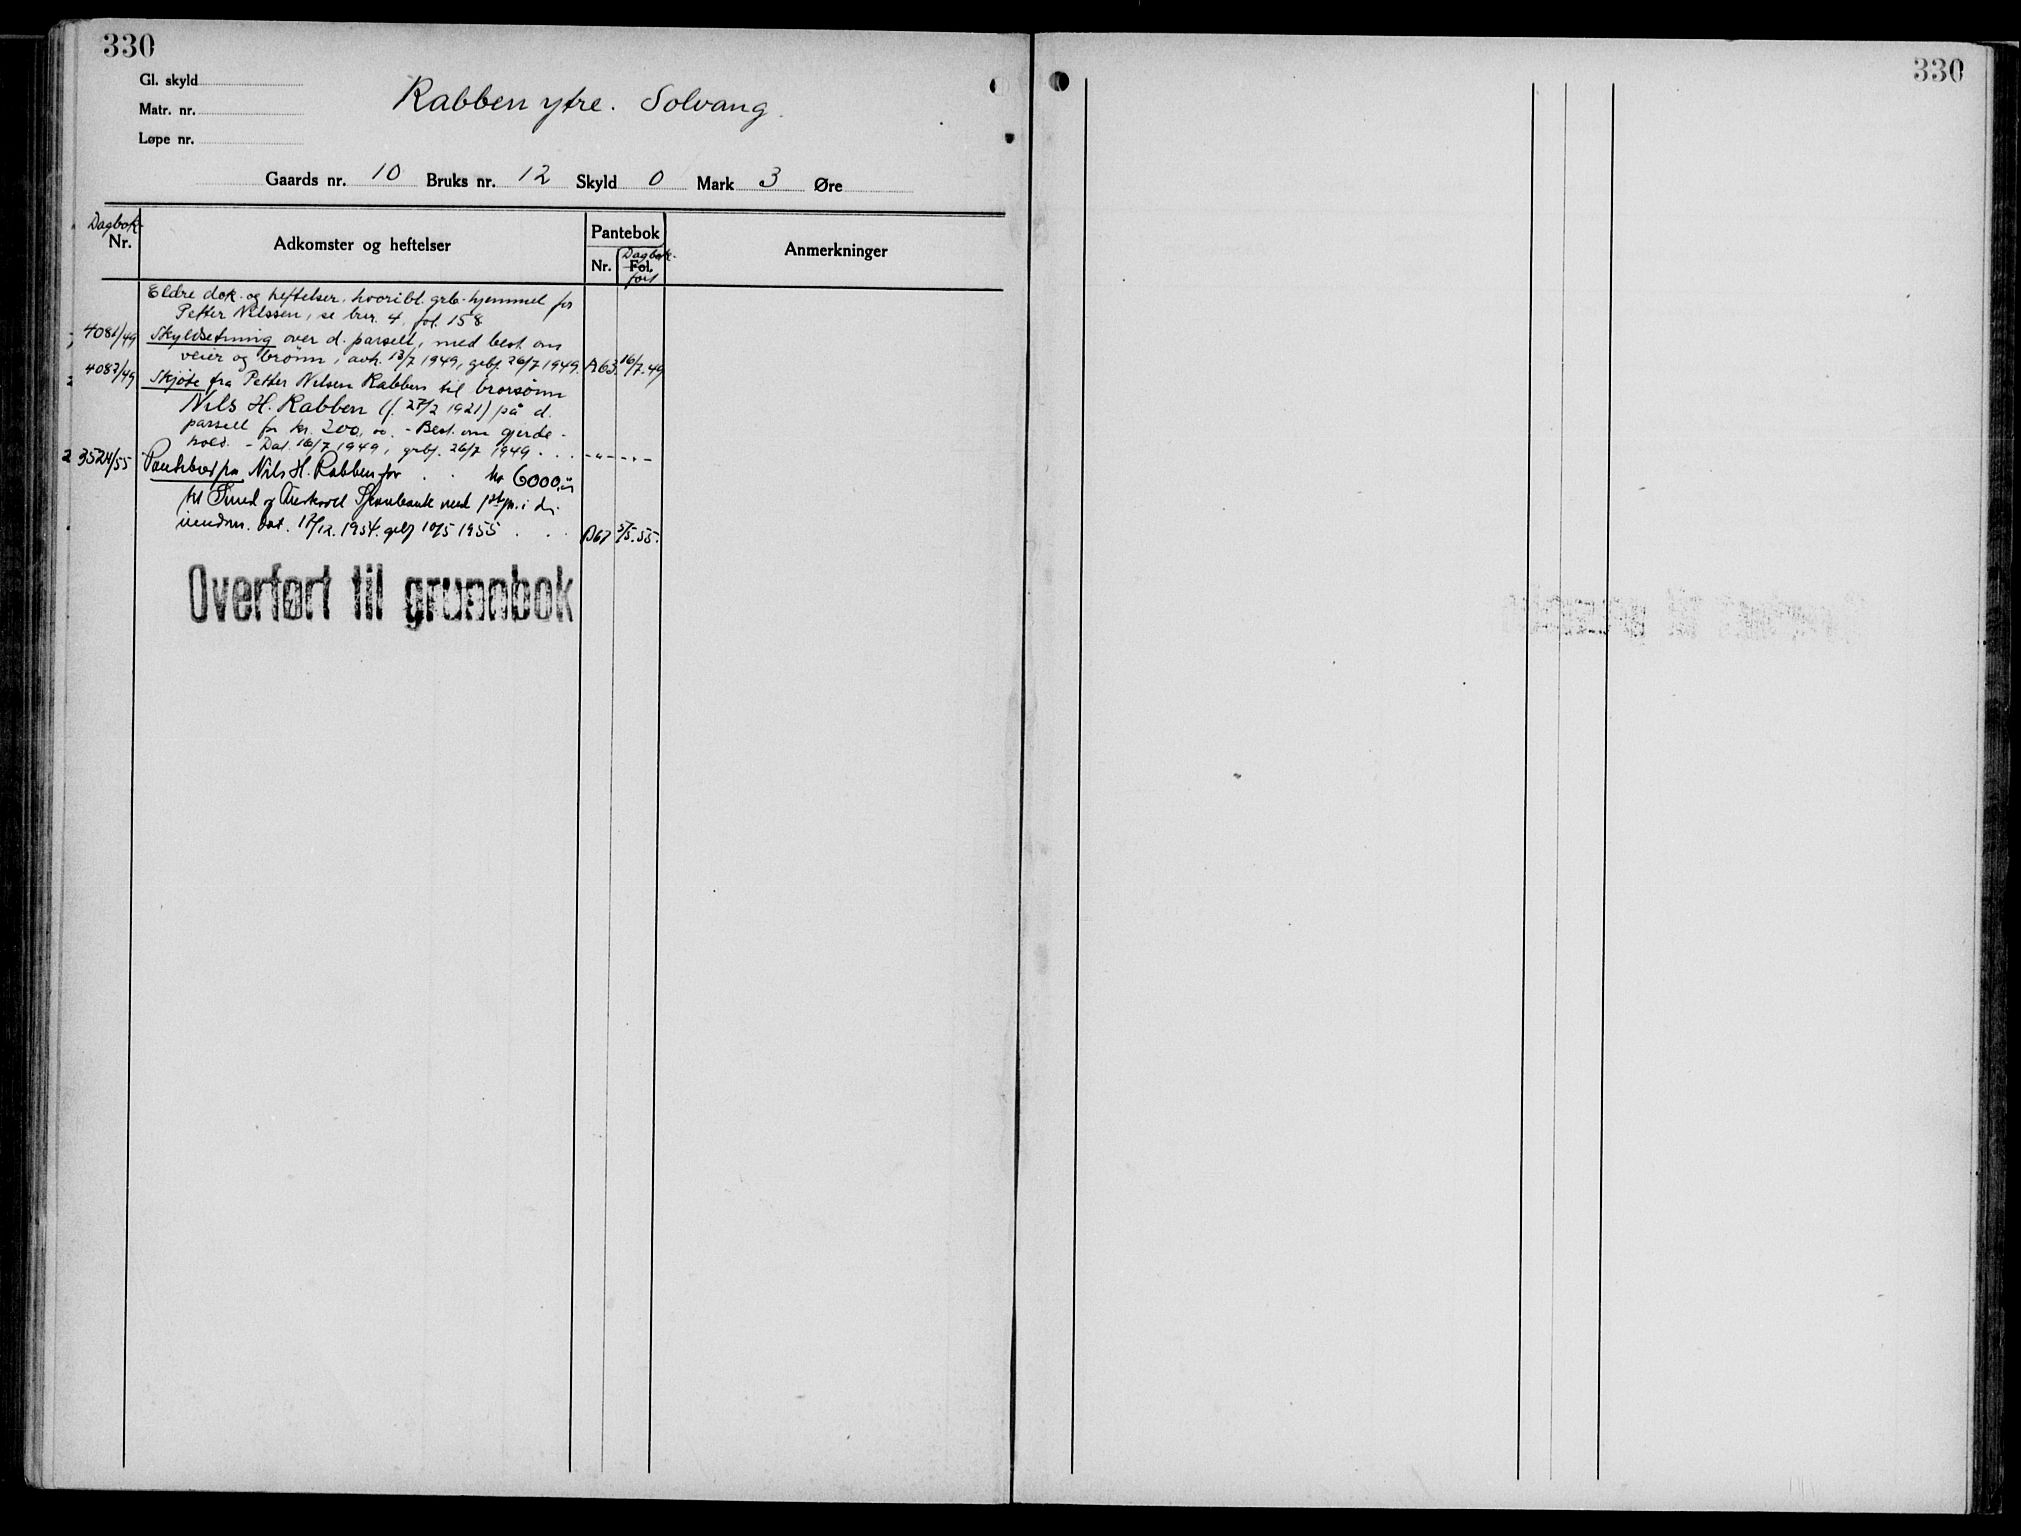 330
330
Gl. skyld
Matr. nr.
Løpe nr.
Rabben ytre. Solvang.
Gaards nr. 10 Bruks nr. 12 Skyld 0 Mark 3 Øre
Dagbok-
Nr.
Adkomster og heftelser
Pantebok
Nr.
Dagbok-
Fol.
ført
Anmerkninger
Eldre dok. og heftelser, hvoribl. grb. hjemmel for
Petter Nilssen, se bnr. 4, fol. 158
4081/49 Skyldsetning over d. parsell, med best. om
veier og brønn, avh. 13/7 1949, gebf 26/7 1949. A63 16/7.49
4082/49 Skjøte fra Petter Nilsen Rabben til brorsønn
Nils H. Rabben (f. 27/2 1921) på d.
parsell for kr. 200,00. - Best. om gjerde-
hold. - Dat. 16/7 1949, gebf. 26/7 1949 . . . -"- -"-
3524/55 Pantebref fra Nils H. Rabben for . . kr 6000,00
til Sparebank med i d.
eiendom. Dat. 17/12. 1954. 10/5 1955 . . . B67 5/5.55.
Overført til grunnbok